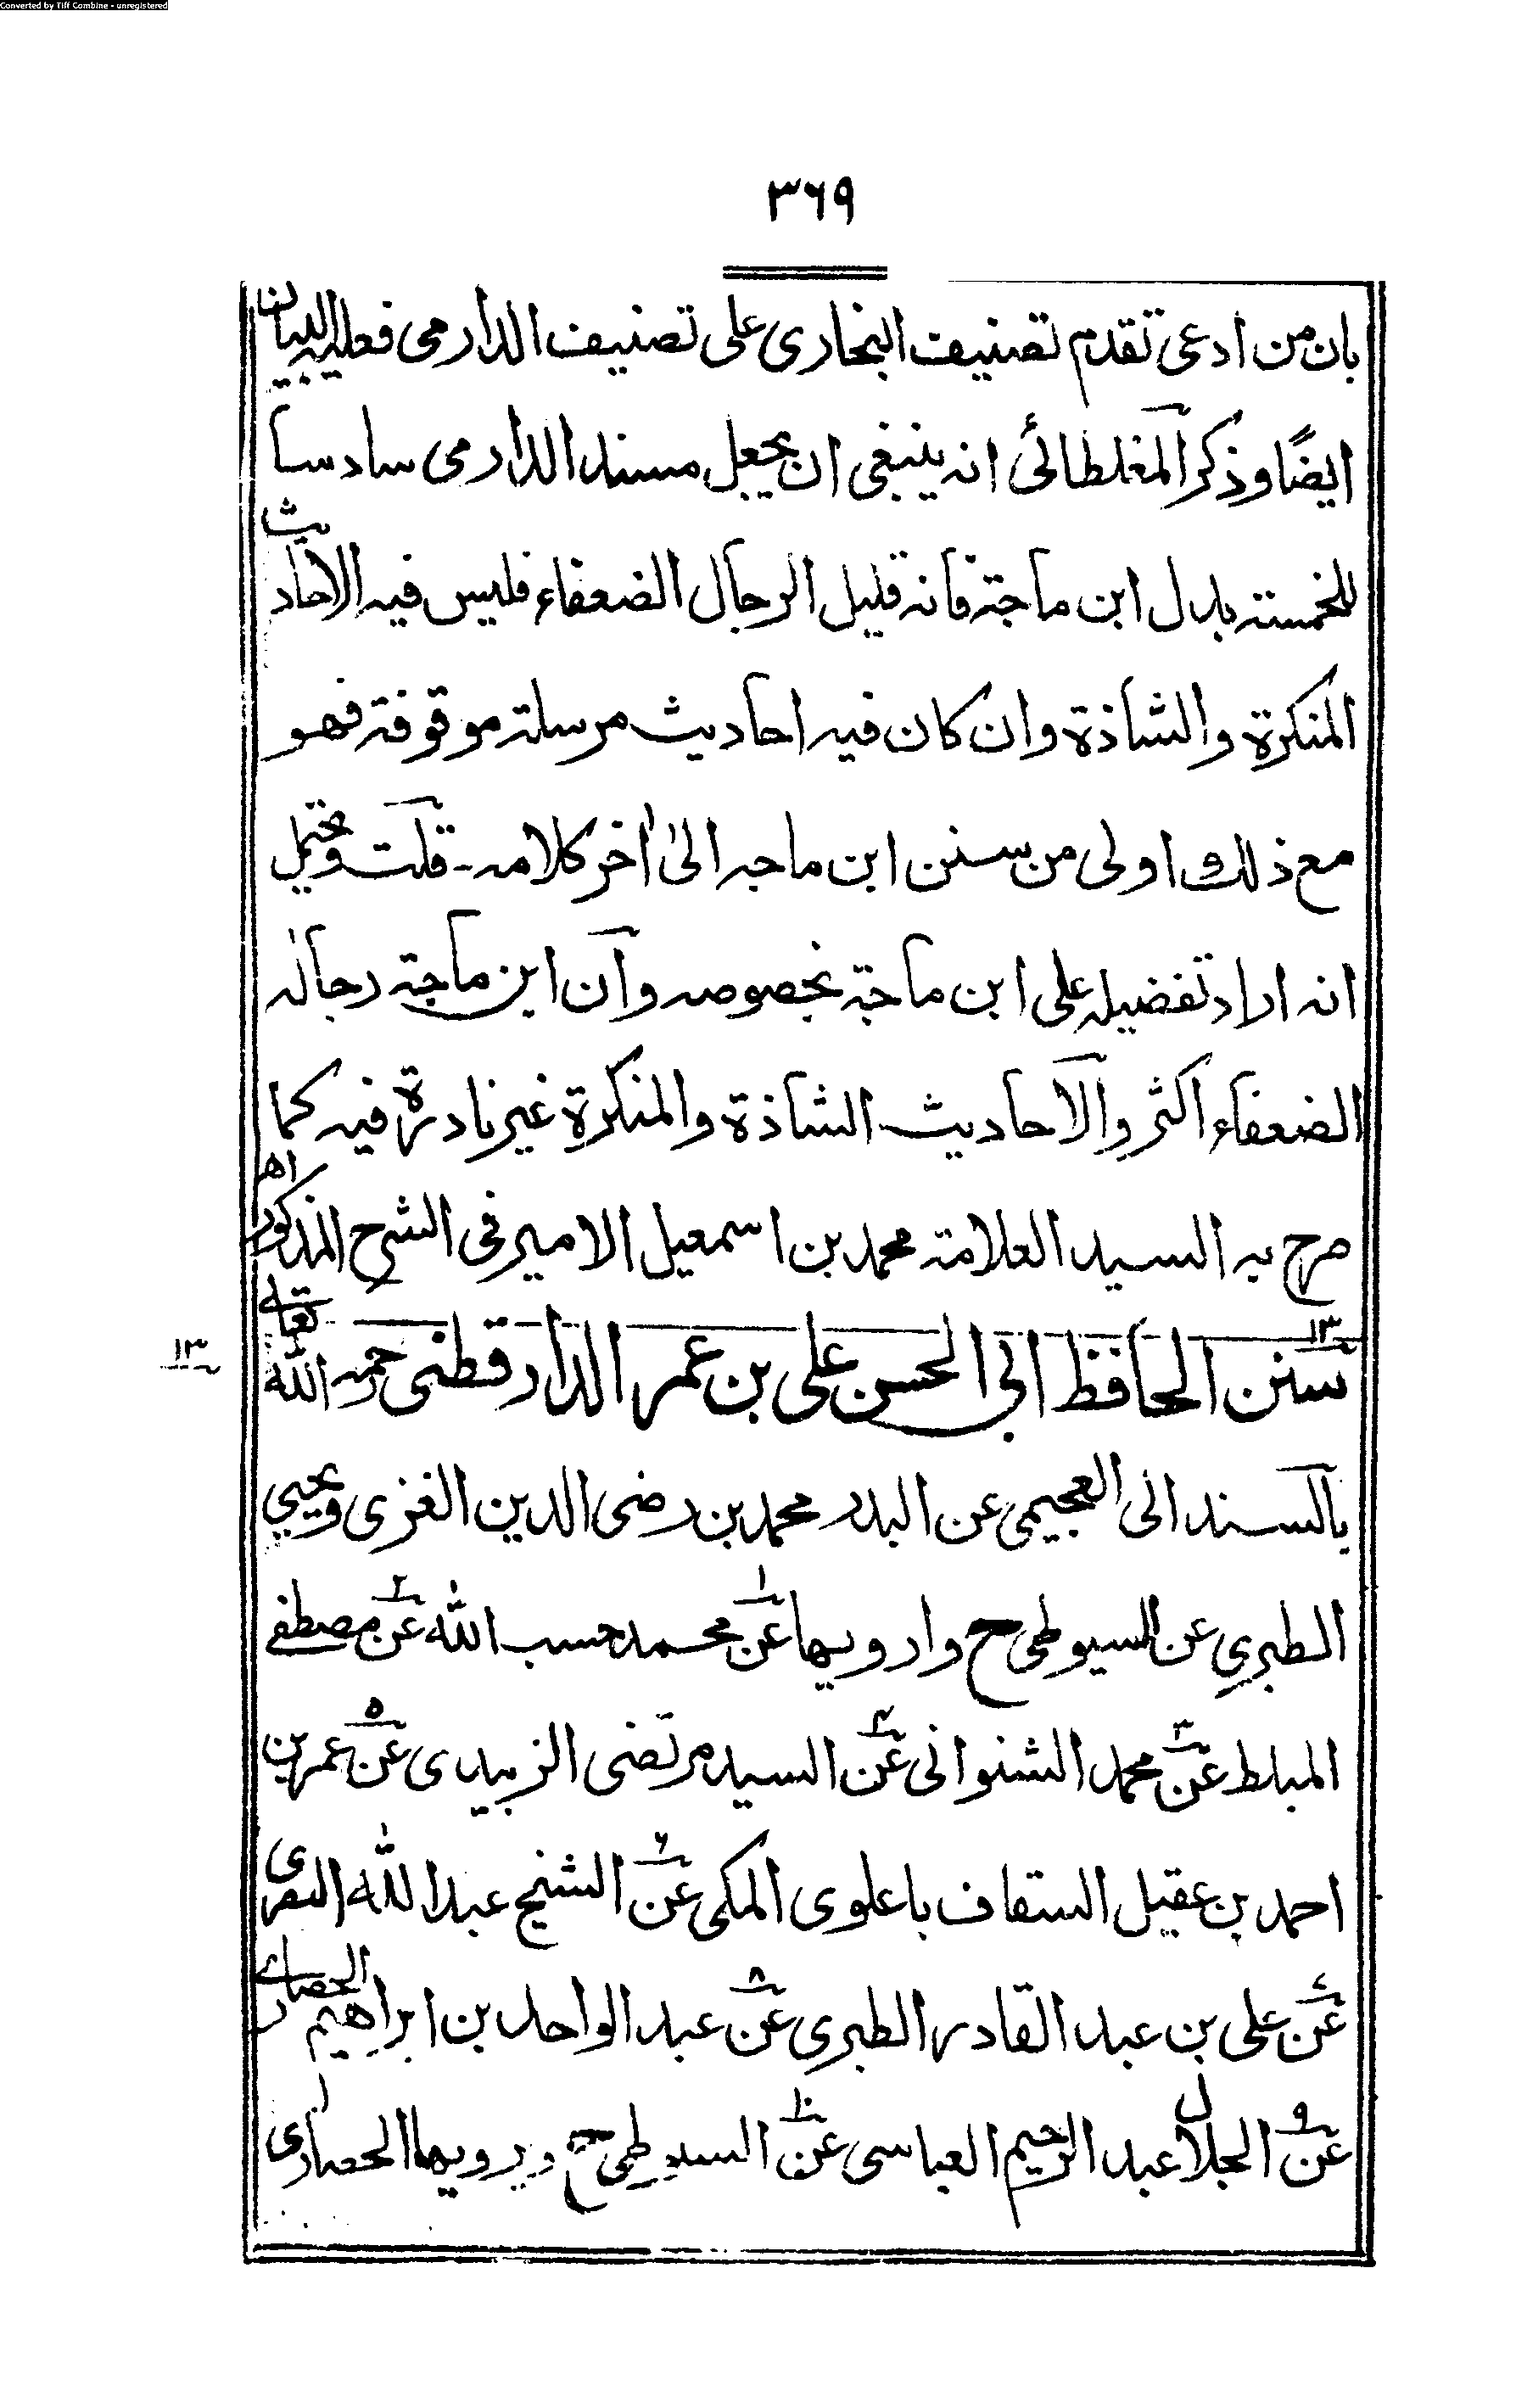 Converted by Tiff Combine - unregistered
٣٦٩
بان من ادعى تقدم تصنيف البخارى على تصنيف الدارمى فعليه البيان
ايضًا وذكر المغلطائى انه ينبغى ان يجعل مسند الدارمى سادسا
للخمسة بدل ابن ماجة فانه قليل الرجال الضعفاء فليس فيه الاحاديث
المنكرة والشاذة وان كان فيه احاديث مرسلة موقوفة فهو
مع ذلك اولى من سنن ابن ماجه الى اخر كلامه - قلت ويحتمل
انه اراد تفضيله على ابن ماجة بخصوصه وان ابن ماجة رجاله
الضعفاء اكثر والاحاديث الشاذة والمنكرة غير نادرة فيه كما
صرح به السيد العلامة محمد بن اسمعيل الامير فى الشرح المذكور اھ
١٣ سنن الحافظ ابي الحسن على بن عمر الدارقطنى رحمه الله تعالے ١٣
بالسند الى العجيمى عن البدر محمد بن رضى الدين الغزى ويحيي
الطبرى عن السيوطى ح وارويها عن١ محمد حسب الله عن٢ مصطفے
المبلط عن٣ محمد الشنوانى عن٤ السيد مرتضى الزبيدى عن٥ عمر بن
احمد بن عقيل السقاف باعلوى المكى عن٦ الشيخ عبد الله البصرى
عن٧ على بن عبد القادر الطبرى عن٨ عبد الواحد بن ابراهيم الحصارے
عن٩ الجلال عبد الرحيم العباسى عن١٠ السيوطى ح ويرويها الحصارى